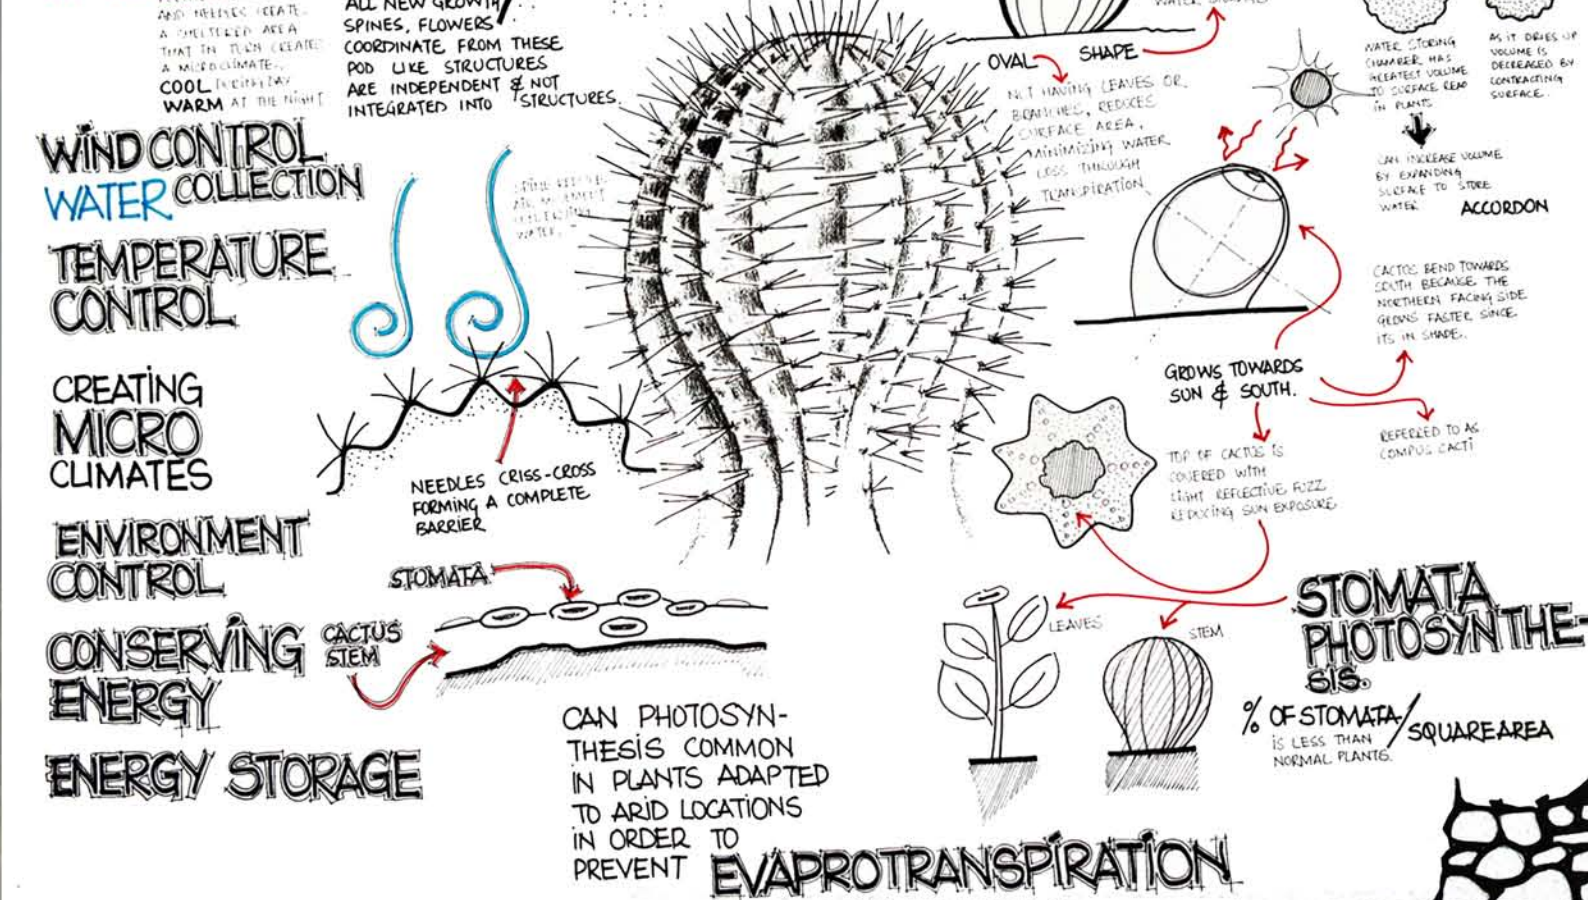 AND NEEDLES CREATE
A SHELTERED AREA
THAT IN TURN CREATES
A MICROCLIMATE.
COOL DURING DAY
WARM AT THE NIGHT
ALL NEW GROWTH
SPINES, FLOWERS
COORDINATE FROM THESE
POD LIKE STRUCTURES
ARE INDEPENDENT & NOT
INTEGRATED INTO STRUCTURES.
WIND CONTROL
WATER COLLECTION
TEMPERATURE
CONTROL
CREATING
MICRO
CLIMATES
ENVIRONMENT
CONTROL
CONSERVING
ENERGY
ENERGY STORAGE
WATER
NEEDLES CRISS-CROSS
FORMING A COMPLETE
BARRIER
STOMATA
CACTUS
STEM
CAN PHOTOSYN-
THESIS COMMON
IN PLANTS ADAPTED
TO ARID LOCATIONS
IN ORDER TO
PREVENT EVAPROTRANSPIRATION
OVAL SHAPE
NOT HAVING LEAVES OR
BRANCHES, REDUCES
SURFACE AREA,
MINIMIZING WATER
LOSS THROUGH
TRANSPIRATION
WATER STORING
CHAMBER HAS
GREATEST VOLUME
TO SURFACE READ
IN PLANTS
AS IT DRIES UP
VOLUME IS
DECREASED BY
CONTRACTING
SURFACE.
CAN INCREASE VOLUME
BY EXPANDING
SURFACE TO STORE
WATER ACCORDON
CACTUS BEND TOWARDS
SOUTH BECAUSE THE
NORTHERN FACING SIDE
GROWS FASTER SINCE
ITS IN SHADE.
GROWS TOWARDS
SUN & SOUTH.
REFERRED TO AS
COMPUS CACTI
TOP OF CACTUS IS
COVERED WITH
LIGHT REFLECTIVE FUZZ
REDUCING SUN EXPOSURE
LEAVES
STEM
STOMATA
PHOTOSYNTHE-
SIS.
% OF STOMATA / SQUARE AREA
IS LESS THAN
NORMAL PLANTS.